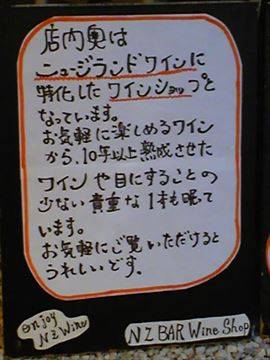 店内奥は
ニュージランドワインに
特化したワインショップと
なっています。
お気軽に楽しめるワイン
から、10年以上熟成させた
ワインや目にすることの
少ない貴重な1本も眠って
います。
お気軽にご覧いただけると
うれしいです.
enjoy
NZ Wine
NZ BAR Wine Shop